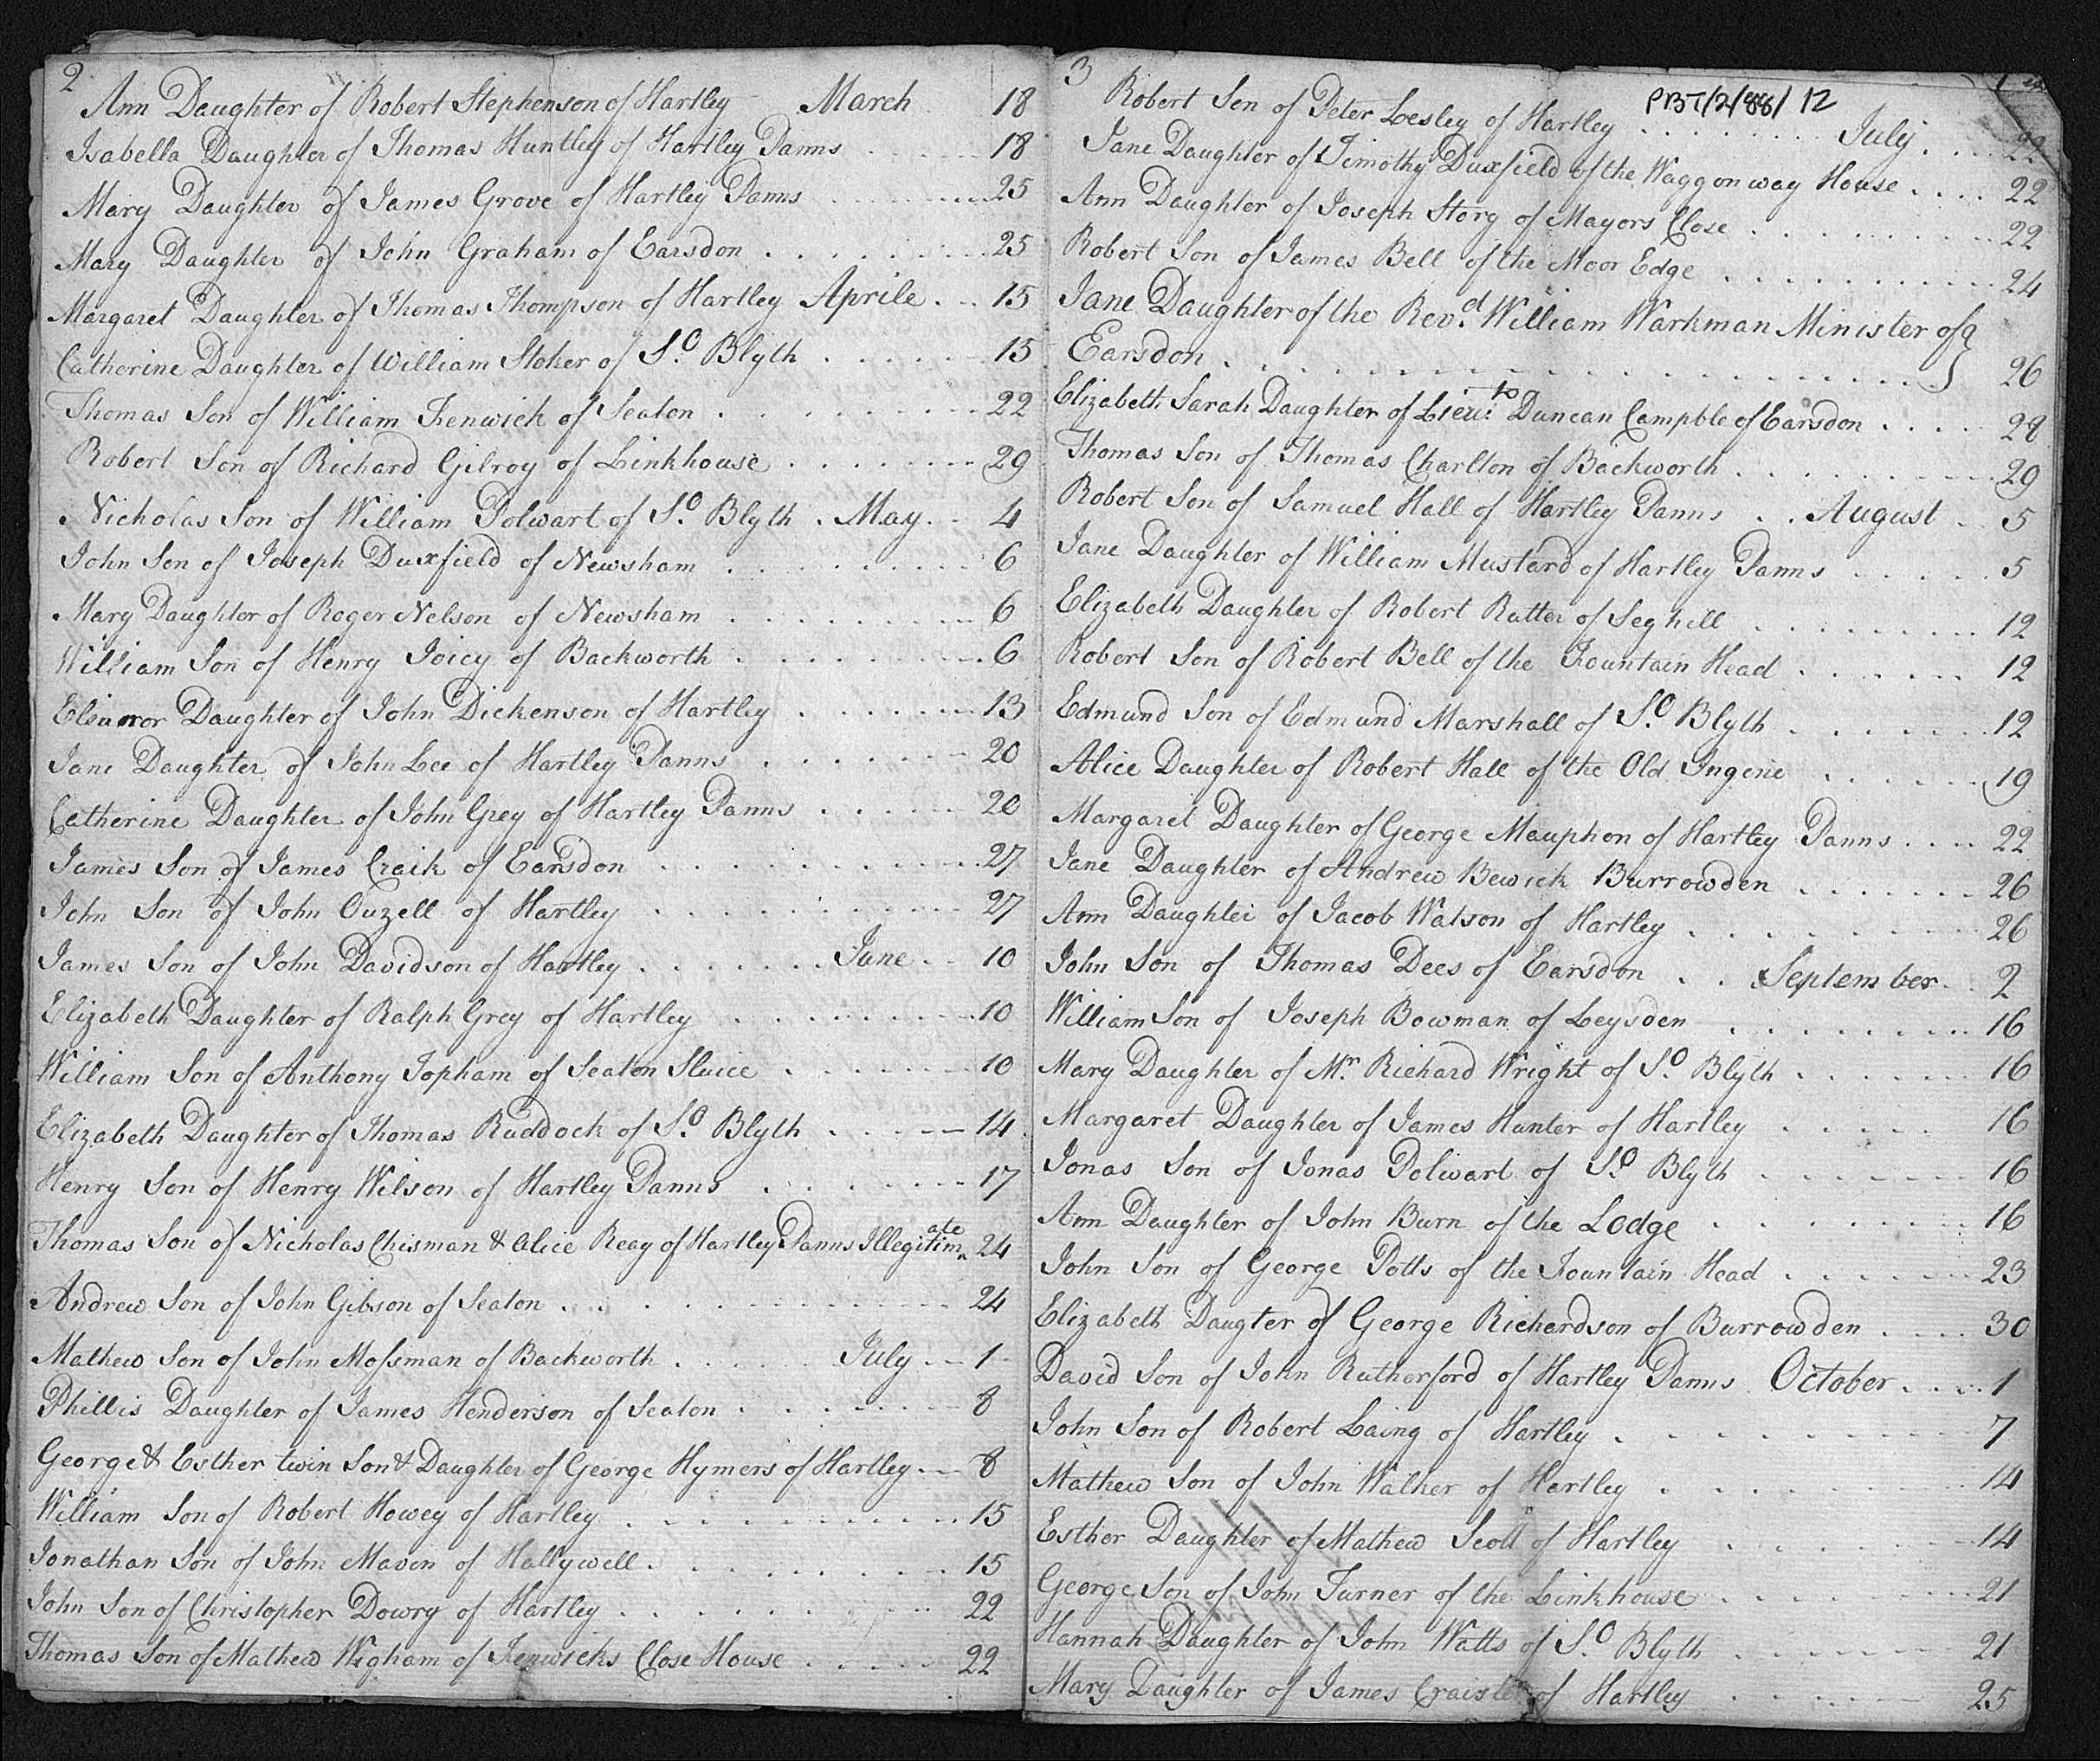 2
Ann Daughter of Robert Stephenson of Hartley March 18
Isabella Daughter of Thomas Huntley of Hartley Panns 18
Mary Daughter of James Grove of Hartley Panns 25
Mary Daughter of John Graham of Earsdon 25
Margaret Daughter of Thomas Thompson of Hartley Aprile 15
Catherine Daughter of William Stoker of So. Blyth 15
Thomas Son of William Fenwick of Seaton 22
Robert Son of Richard Gilroy of Linkhouse 29
Nicholas Son of William Polwart of So. Blyth May 4
John Son of Joseph Duxfield of Newsham 6
Mary Daughter of Roger Nelson of Newsham 6
William Son of Henry Joicy of Backworth 6
Eleanor Daughter of John Dickenson of Hartley 13
Jane Daughter of John Lee of Hartley Panns 20
Catherine Daughter of John Grey of Hartley Panns 20
James Son of James Craik of Earsdon 27
John Son of John Ouzell of Hartley 27
James Son of John Davidson of Hartley June 10
Elizabeth Daughter of Ralph Grey of Hartley 10
William Son of Anthony Topham of Seaton Sluice 10
Elizabeth Daughter of Thomas Ruddock of So. Blyth 14
Henry Son of Henry Wilson of Hartley Panns 17
Thomas Son of Nicholas Chisman & Alice Reay of Hartley Panns Illegitimate 24
Andrew Son of John Gibson of Seaton 24
Mathew Son of John Mossman of Backworth July 1
Phillis Daughter of James Henderson of Seaton 8
George & Esther twin Son & Daughter of George Hymers of Hartley 8
William Son of Robert Howey of Hartley 15
Jonathan Son of John Maven of Hallywell 15
John Son of Christopher Dowry of Hartley 22
Thomas Son of Mathew Wigham of Fenwicks Close House 22
3
PBT/2/88/12
Robert Son of Peter Lesley of Hartley July 22
Jane Daughter of Timothy Duxfield of the Waggonway House 22
Ann Daughter of Joseph Story of Mayors Close 22
Robert Son of James Bell of the Moor Edge 24
Jane Daughter of the Revd. William Warkman Minister of
Earsdon 26
Elizabeth Sarah Daughter of Lieuto. Duncan Campble of Earsdon 28
Thomas Son of Thomas Charlton of Backworth 29
Robert Son of Samuel Hall of Hartley Panns August 5
Jane Daughter of William Mustard of Hartley Panns 5
Elizabeth Daughter of Robert Rutter of Seghill 12
Robert Son of Robert Bell of the Fountain Head 12
Edmund Son of Edmund Marshall of So. Blyth 12
Alice Daughter of Robert Hall of the Old Ingine 19
Margaret Daughter of George Mauphen of Hartley Panns 22
Jane Daughter of Andrew Bewick Burrowden 26
Ann Daughter of Jacob Watson of Hartley 26
John Son of Thomas Dees of Earsdon September 2
William Son of Joseph Bowman of Leysden 16
Mary Daughter of Mr. Richard Wright of So. Blyth 16
Margaret Daughter of James Hunter of Hartley 16
Jonas Son of Jonas Polwart of So. Blyth 16
Ann Daughter of John Burn of the Lodge 16
John Son of George Potts of the Fountain Head 23
Elizabeth Daugter of George Richardson of Burrowden 30
David Son of John Rutherford of Hartley Panns October 1
John Son of Robert Laing of Hartley 7
Mathew Son of John Walker of Hartley 14
Esther Daughter of Mathew Scott of Hartley 14
George Son of John Turner of the Linkhouse 21
Hannah Daughter of John Watts of So. Blyth 21
Mary Daughter of James Craister of Hartley 25